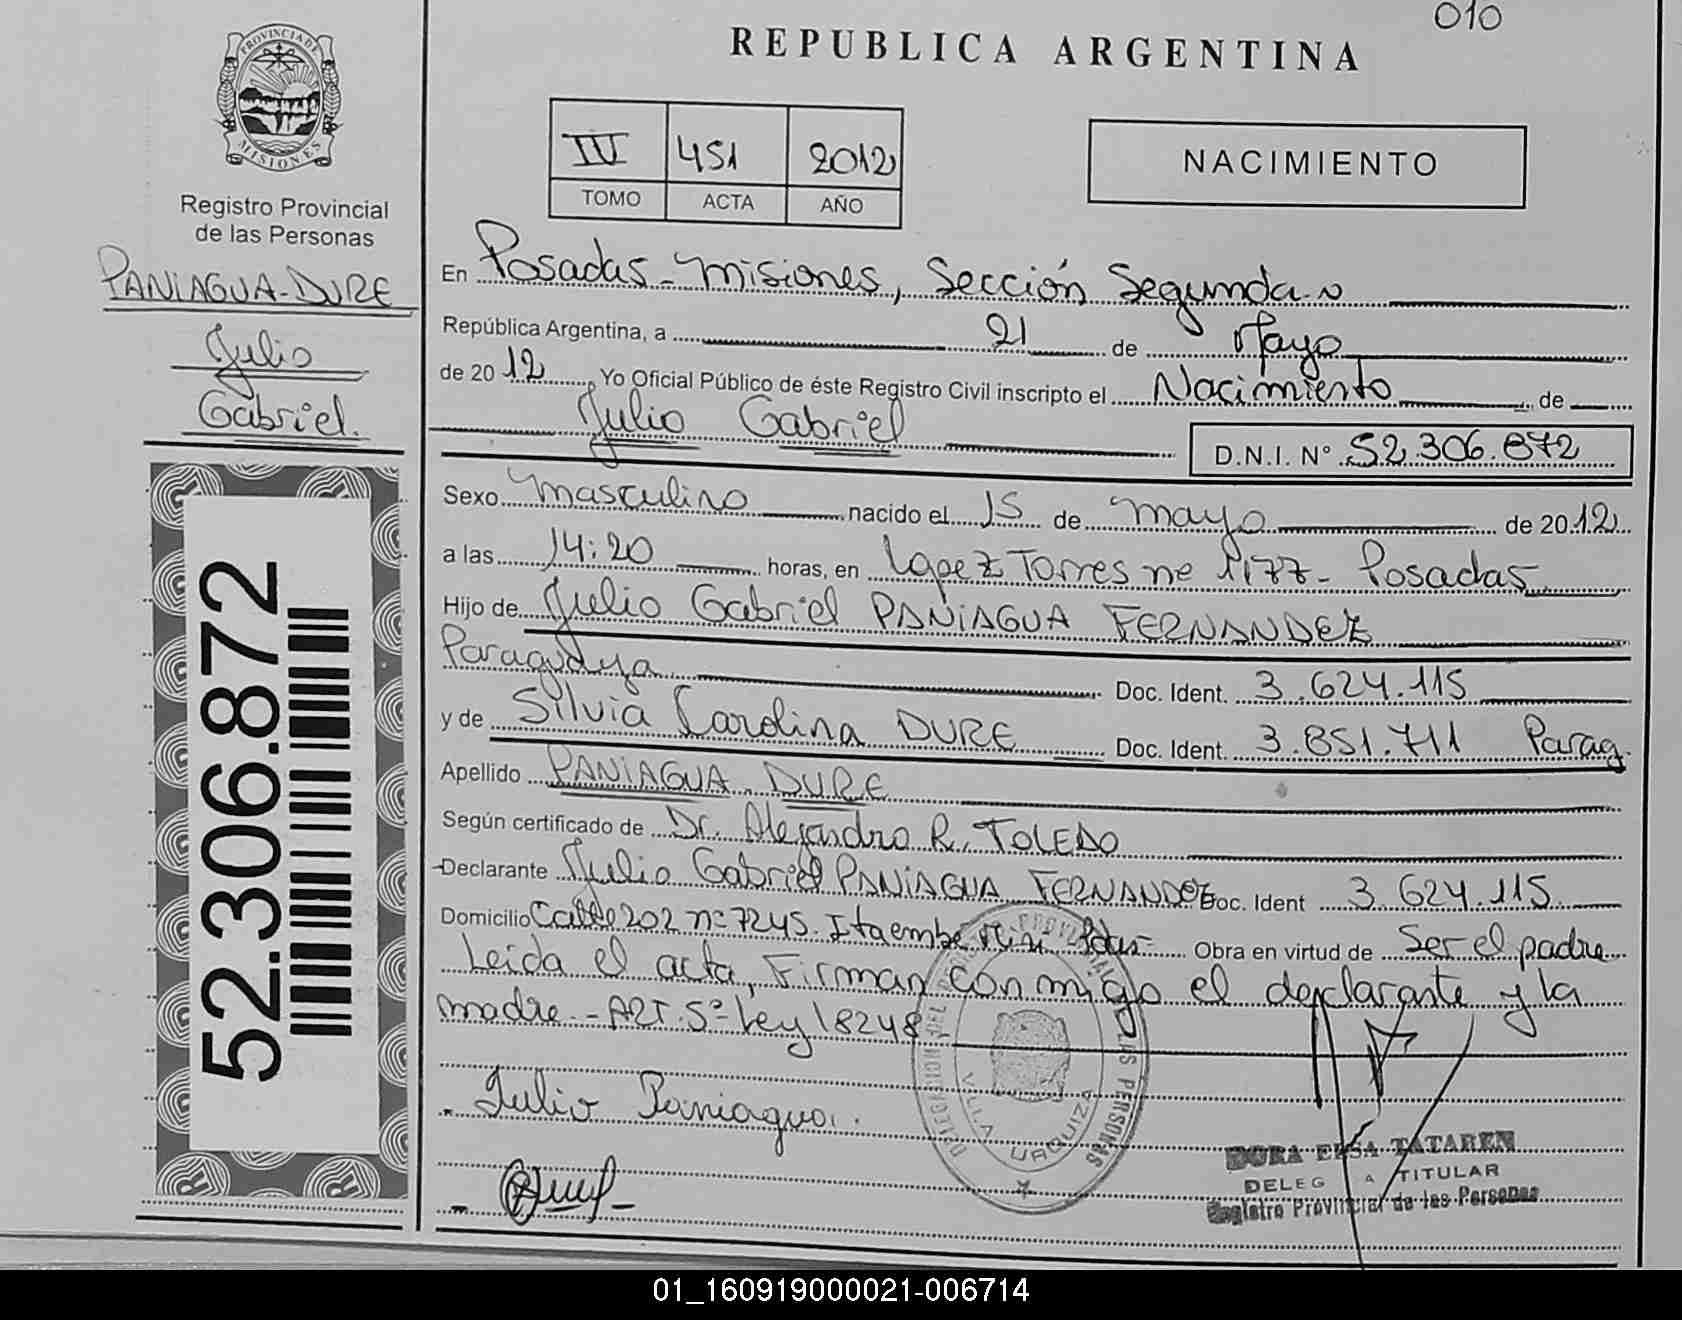 010
REPUBLICA ARGENTINA
PROVINCIA DE
MISIONES
Registro Provincial
de las Personas
PANIAGUA-DURE
Julio
Gabriel.
52.306.872
IV 451 2012
TOMO ACTA AÑO
NACIMIENTO
En Posadas - Misiones, Sección Segunda
República Argentina, a 21 de Mayo
de 2012, Yo Oficial Público de éste Registro Civil inscripto el Nacimiento de
Julio Gabriel
D.N.I. N° 52.306.872
Sexo Masculino nacido el 15 de mayo de 2012
a las 14:20 horas, en Lopez Torres nº 1177 - Posadas
Hijo de Julio Gabriel PANIAGUA FERNANDEZ
Paraguaya Doc. Ident. 3.624.115
y de Silvia Carolina DURE Doc. Ident. 3.851.711 Parag.
Apellido PANIAGUA DURE
Según certificado de Dr. Alejandro R. TOLEDO
Declarante Julio Gabriel PANIAGUA FERNANDEZ Doc. Ident 3.624.115
Domicilio Calle 202 nº 7245. Itaembe Mini Pdas- Obra en virtud de Ser el padre
Leida el acta, Firman conmigo el declarante y la
madre.- ART. 5º Ley 18248
Julio Paniagua.
VILLA URQUIZA
DE LAS PERSONAS
DORA ELSA TATAREN
DELEG A TITULAR
Registro Provincial de las Personas
01_160919000021-006714